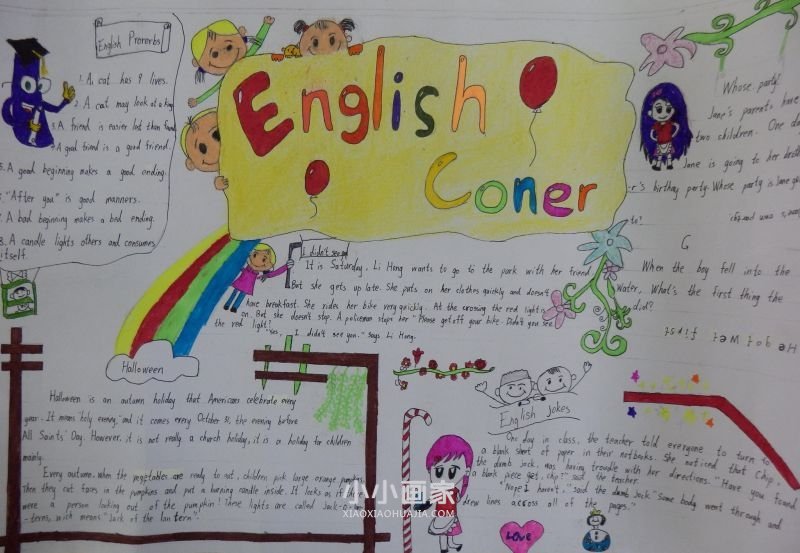 English Proverbs
1. A cat has 9 lives.
2. A cat may look at a king
3. A friend is easier lost than found
A good friend is a good friend.
5. A good beginning makes a good ending.
6. "After you" is good manners.
7. A bad beginning makes a bad ending.
8. A candle lights others and consumes
itself.
English
Coner
Whose party!
Jane's parents have
two children. One day
Jane is going to her brother
birthay party. Whose party is Jane going
to?
Jane's own party
G
When the boy fell into the
water, What's the first thing the
did?
He got wet first
I didn't see you!
It is Saturday. Li Hong wants to go to the park with her friend
But she gets up late. She puts on her clothes quickly and doesn't
have breakfast. She rides her bike very quickly. At the crossing the red light is
on. But she doesn't stop. A policeman stops her "Please get off your bike. Didn't you see
the red light?
"Yes, I didn't see you." says Li Hong.
Halloween
Halloween is an autumn holiday that Americans celebrate every
year. It means "holy evening" and it comes every October 31, the evening before
All Saints' Day. However, it is not really a church holiday, it is a holiday for children
mainly.
Every autumn, when the vegetables are ready to eat, children pick large orange pumpkins
Then they cut faces in the pumpkins and put a burning candle inside. It looks as if there
were a person looking out of the pumpkin! These lights are called Jack-o-lan
-terns, wich means "Jack of the lantern".
English Jokes
One day in class, the teacher told everyone to turn to
a blank sheet of paper in their notbooks. She noticed that Chip,
the dumb Jock, was having trouble with her directions. "Have you found
a blank piece yet, chip?" said the teacher.
"Nope I haven't." said the dumb Jack "Some body went through and
drew lines across all of the pages."
Love
小小画家
XIAOXIAOHUAJIA.COM